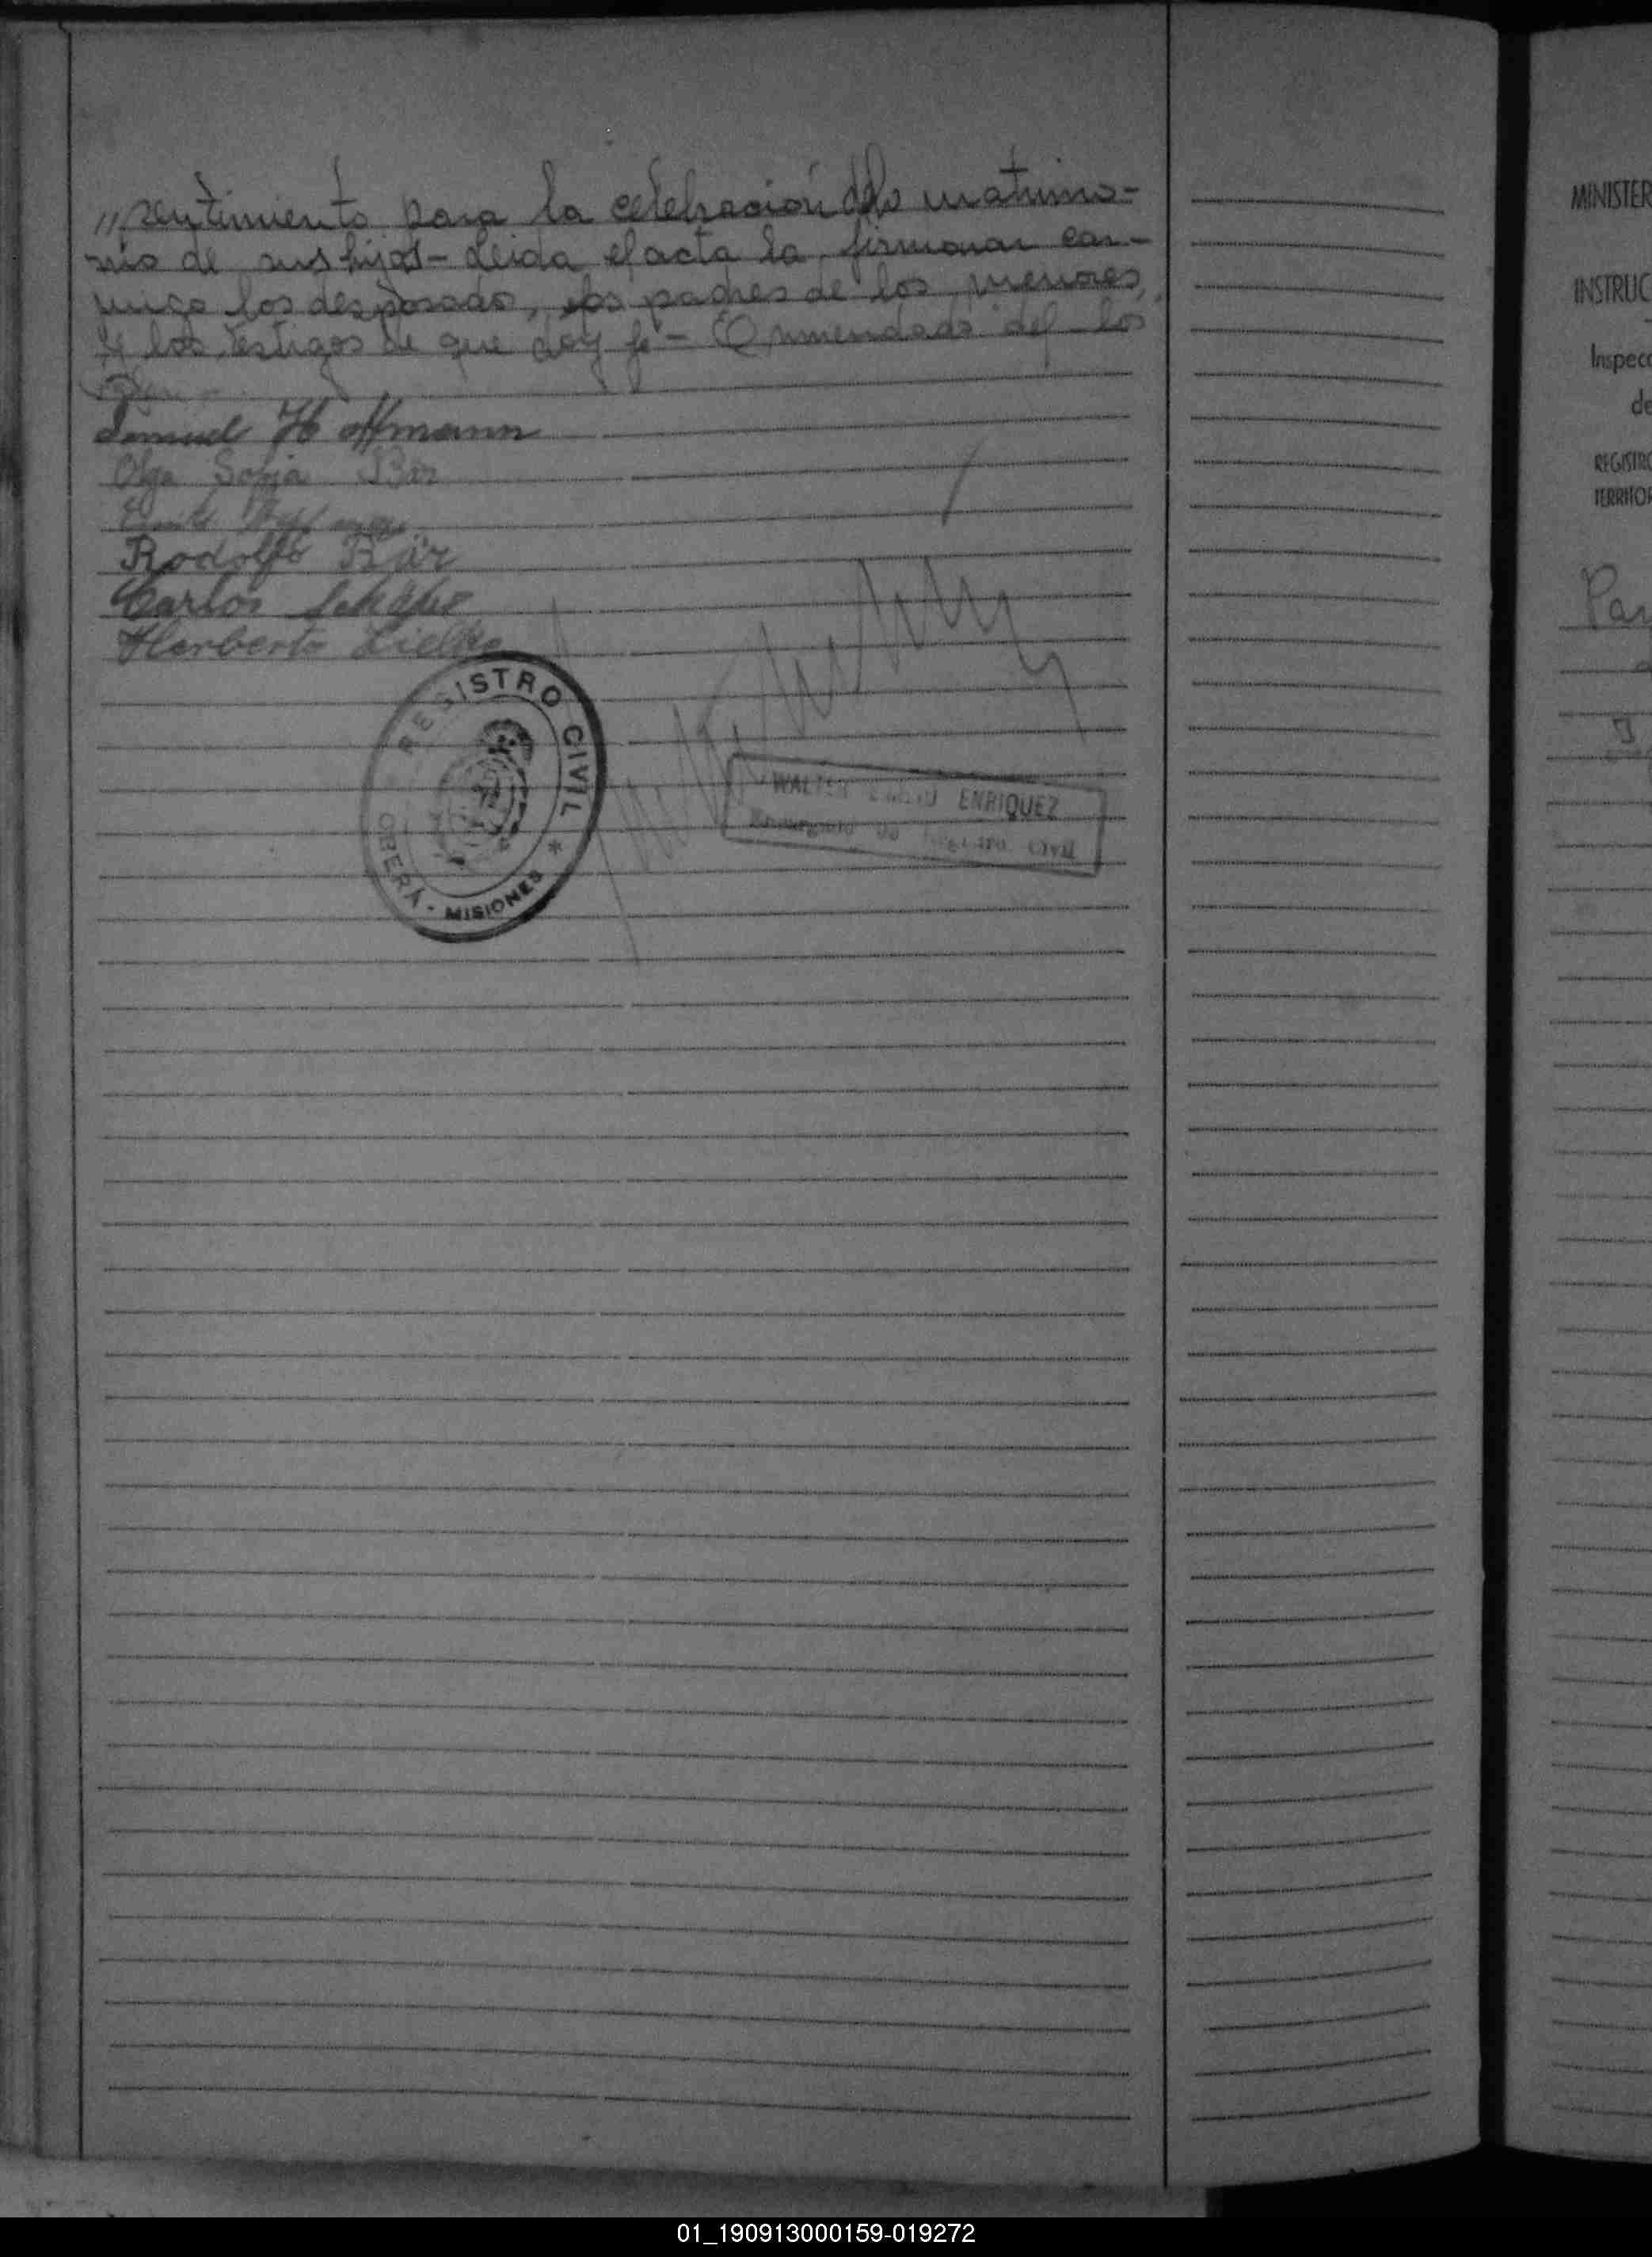 "sentimiento para la celebración del matrimo-
nio de sus hijos - Leida el acta la firmaron con-
migo los desposado, los padres de los menores,
y los testigos de que doy fé - Enmendado: del - los
Samuel Hoffmann
Olga Sofia Bär
Rodolfo Bär
Carlos
Herberto Zielke
REGISTRO CIVIL *
OBERÁ - MISIONES
WALTER ENRIQUEZ
Encargado de Registro Civil
MINISTER
INSTRUC
Inspecc
de
REGISTRO
TERRITOR
Par
01_190913000159-019272